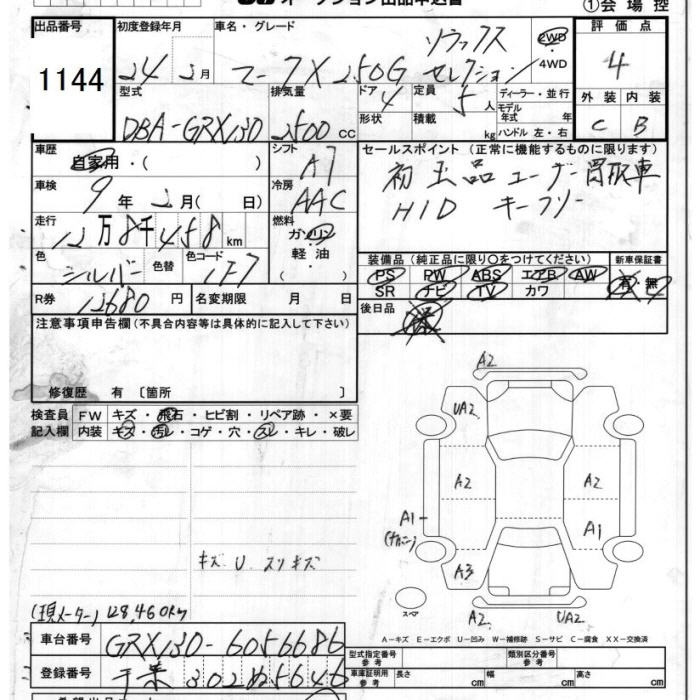 オークション出品申込書
①会場控
出品番号
1144
初度登録年月
24 2月
車名・グレード
マークX 250G
セレクション
2WD
4WD
評価点
4
外装 内装
C B
型式
DBA-GRX130
排気量
2500 cc
ドア
4
形状
定員
5人
積載
kg
ディーラー・並行
モデル年式 年
ハンドル 左・右
車歴
自家用・( )
シフト
A7
セールスポイント (正常に機能するものに限ります)
初出品 ユーザー買取車
HID キーフリー
車検
9年 2月( 日)
冷房
AAC
走行
12万8千458km
燃料
ガソリン
軽油
( )
色
シルバー
色替
色コード
1F7
装備品 (純正品に限り○をつけてください)
新車保証書
PS PW ABS エアB AW
SR ナビ TV カワ
有・無
R券
12680円
名変期限 月 日
後日品
注意事項申告欄 (不具合内容等は具体的に記入して下さい)
修復歴 有 〔箇所 〕
検査員記入欄
FW キズ・飛石・ヒビ割・リペア跡・×要
内装 キズ・汚レ・コゲ・穴・スレ・キレ・破レ
A2
UA2
A2 A2
A1 A1
A3
A2 UA2
スペア
キズ U スリキズ
(現メーター) 128,460km
A-キズ E-エクボ U-凹み W-補修跡 S-サビ C-腐食 XX-交換済
車台番号
GRX130-6056686
型式指定番号
参考
類別区分番号
参考
登録番号
車庫証明用
参考
長さ cm 幅 cm 高さ cm